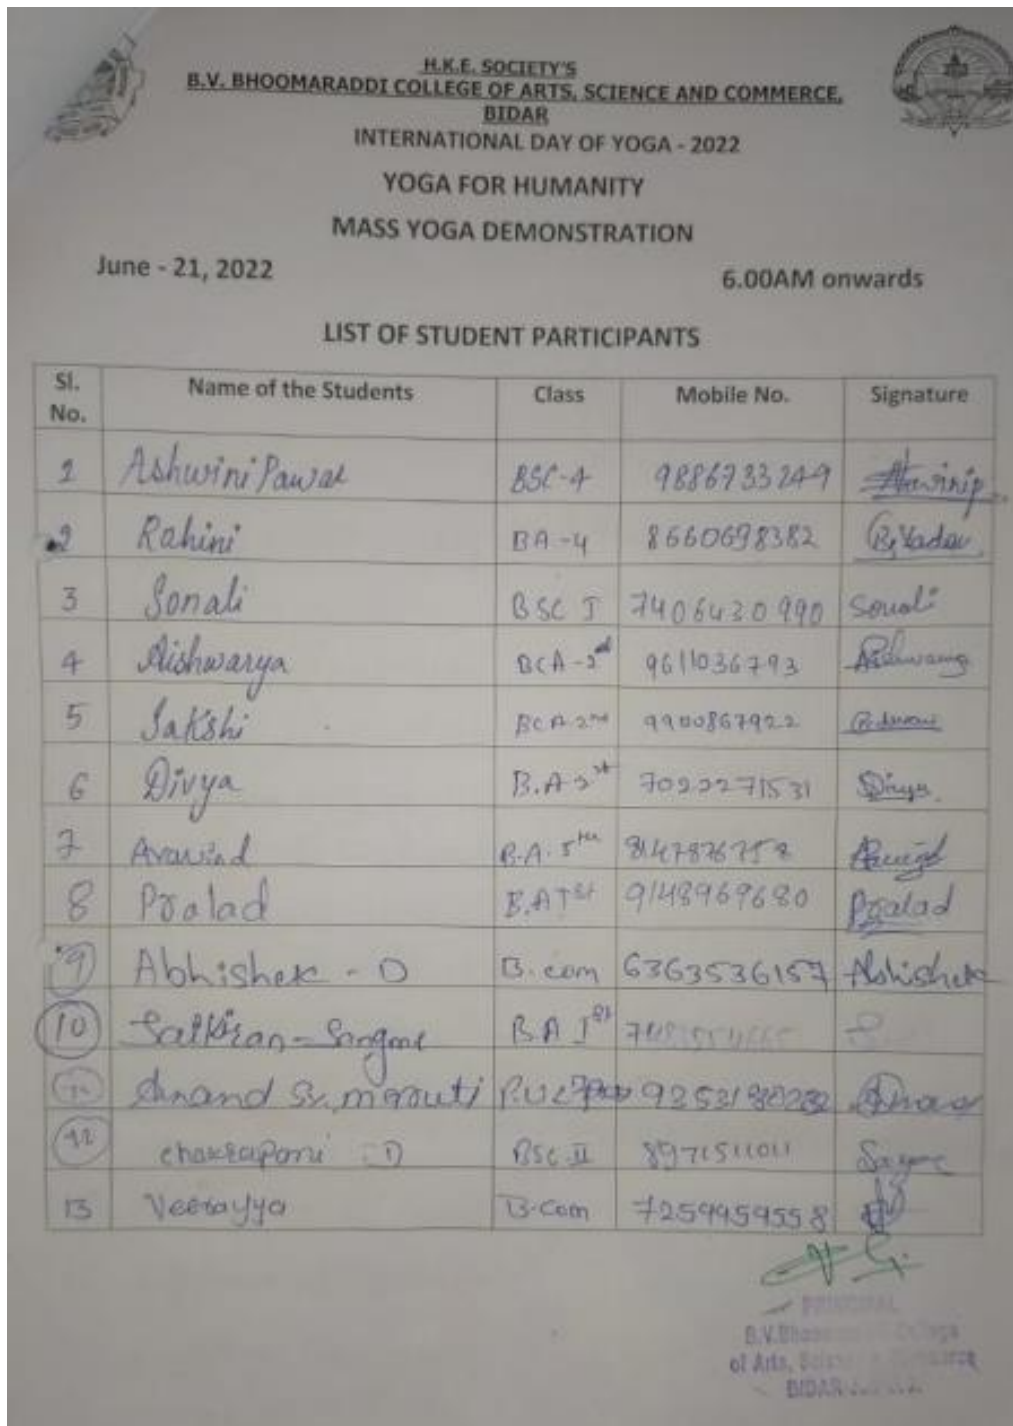 H.K.E. SOCIETY'S
B.V. BHOOMARADDI COLLEGE OF ARTS, SCIENCE AND COMMERCE,
BIDAR
INTERNATIONAL DAY OF YOGA - 2022
YOGA FOR HUMANITY
MASS YOGA DEMONSTRATION
June - 21, 2022 6.00AM onwards
LIST OF STUDENT PARTICIPANTS
Sl. No. Name of the Students Class Mobile No. Signature
1 Ashwini Pawar BSC-4 9886733249
2 Rahini BA-4 8660698382 R.Yadav
3 Sonali BSC I 7406430990 Sonali
4 Aishwarya BCA-2nd 9611036793
5 Sakshi BCA 2nd 9900867922
6 Divya B.A 2st 7022271531 Divya
7 Aravind B.A. 5th 8147876758
8 Pralad B.A Ist 9148969680 Pralad
9 Abhishek - D B.com 6363536157 Abhishek
10 Sangme B.A Ist
Anand S. maruti
12 chakrapani - D BSC II 8971511011
13 Veerayya B.com 7259959558
PRINCIPAL
B.V. College
of Arts,
BIDAR